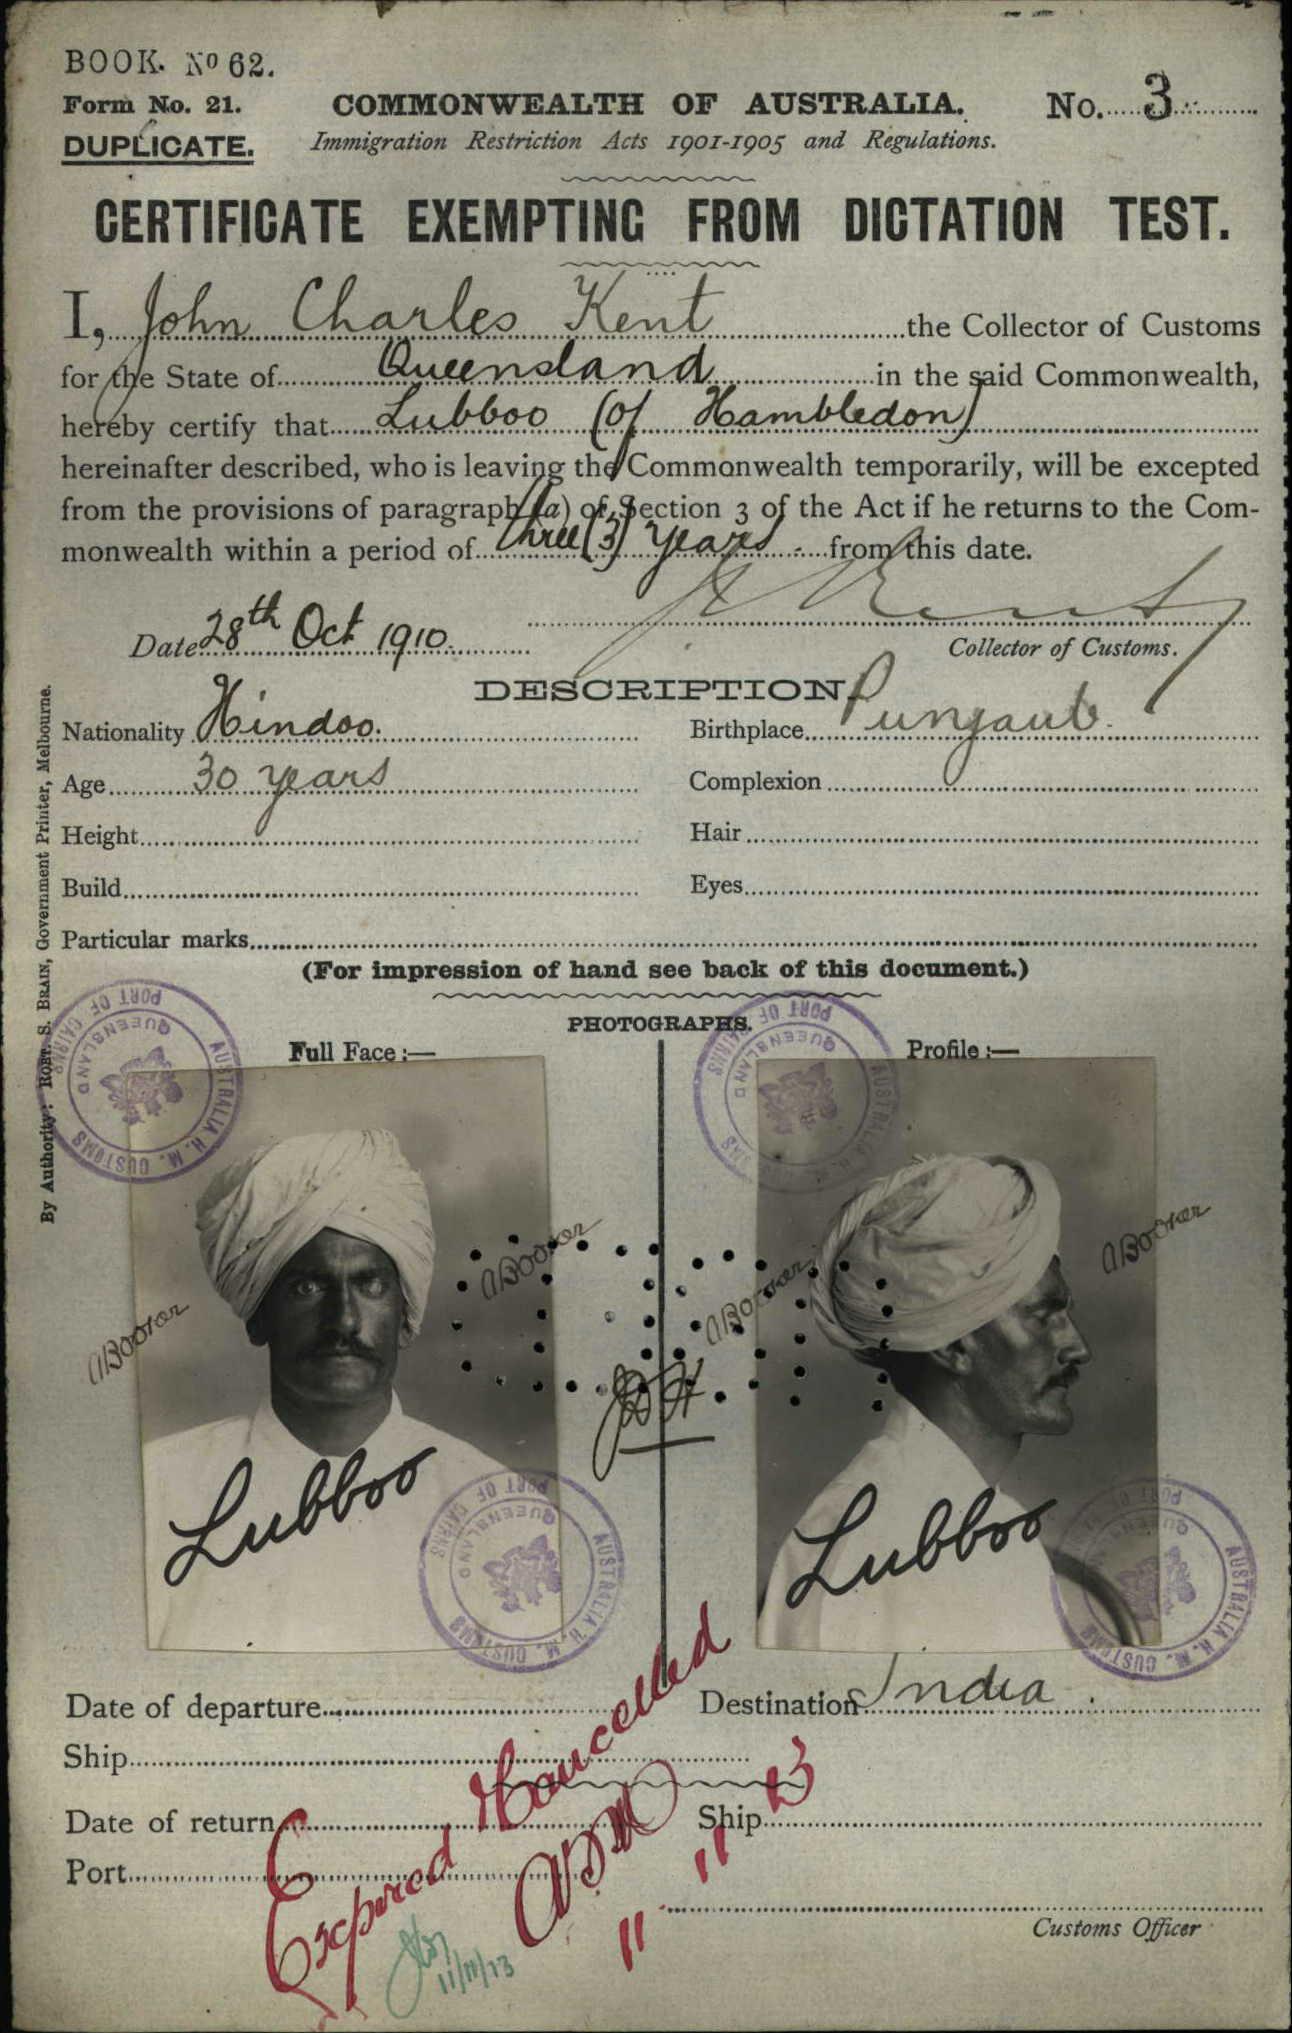 BOOK. No 62.
Form No. 21.
COMMONWEALTH OF AUSTRALIA.
No. 3
DUPLICATE.
Immigration Restriction Acts 1901-1905 and Regulations.
CERTIFICATE EXEMPTING FROM DICTATION TEST.
I, John Charles Kent the Collector of Customs
for the State of Queensland in the said Commonwealth,
hereby certify that Lubboo (of Hambledon)
hereinafter described, who is leaving the Commonwealth temporarily, will be excepted
from the provisions of paragraph (a) of Section 3 of the Act if he returns to the Com-
monwealth within a period of three (3) years from this date.
Date 28th Oct 1910.
Collector of Customs.
DESCRIPTION.
Nationality Hindoo.
Birthplace Punjaub.
Age 30 years
Complexion
Height
Hair
Build
Eyes
Particular marks
(For impression of hand see back of this document.)
PHOTOGRAPHS.
Full Face :—
Profile :—
By Authority: ROBT. S. BRAIN, Government Printer, Melbourne.
AUSTRALIA H. M. CUSTOMS PORT OF CAIRNS QUEENSLAND
AUSTRALIA H. M. CUSTOMS PORT OF CAIRNS QUEENSLAND
Lubboo
Lubboo
AUSTRALIA H. M. CUSTOMS PORT OF CAIRNS QUEENSLAND
AUSTRALIA H. M. CUSTOMS PORT OF QUEENSLAND
Date of departure
Destination India.
Ship
Date of return
Ship
Port
Customs Officer
Expired & Cancelled
11 11 13
11/11/13